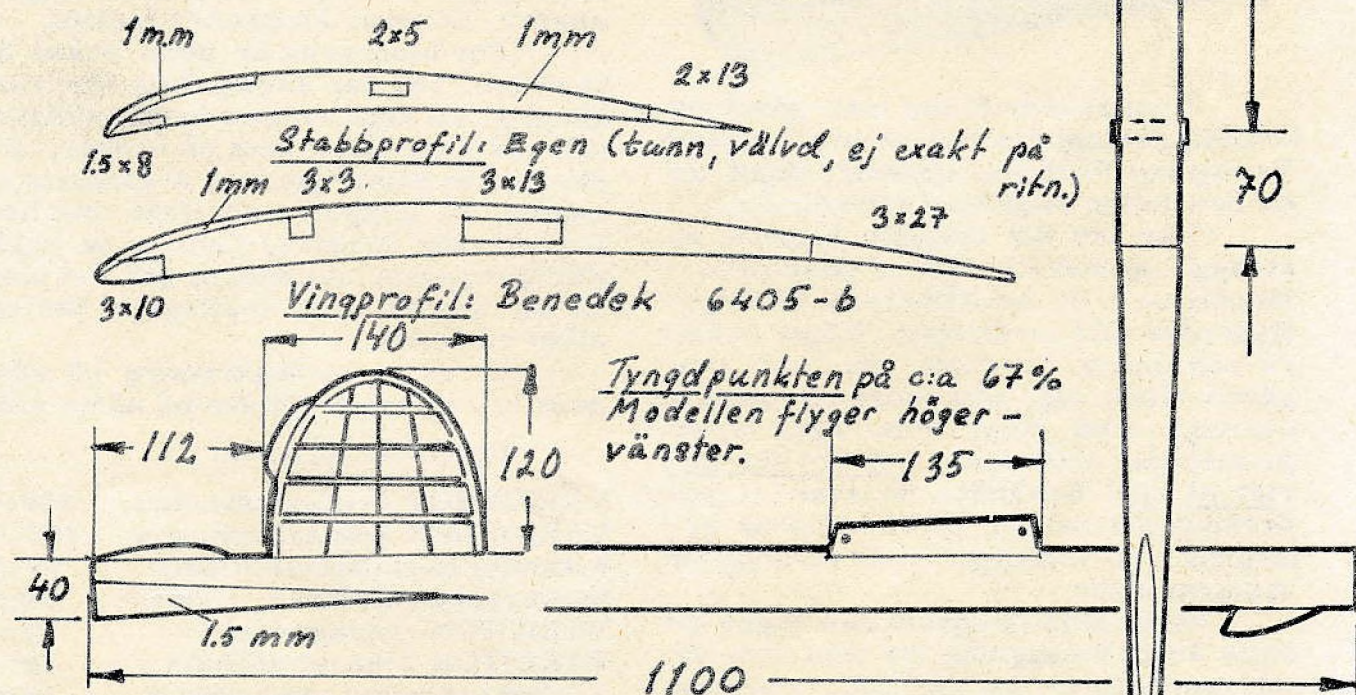 1mm 2x5 1mm 2x13
1.5x8
Stabbprofil: Egen (tunn, välvd, ej exakt på
ritn.)
1mm 3x3 3x13 3x27
3x10
Vingprofil: Benedek 6405-b
70
140
Tyngdpunkten på c:a 67%
Modellen flyger höger-
vänster.
112
120
135
40
1.5 mm
1100